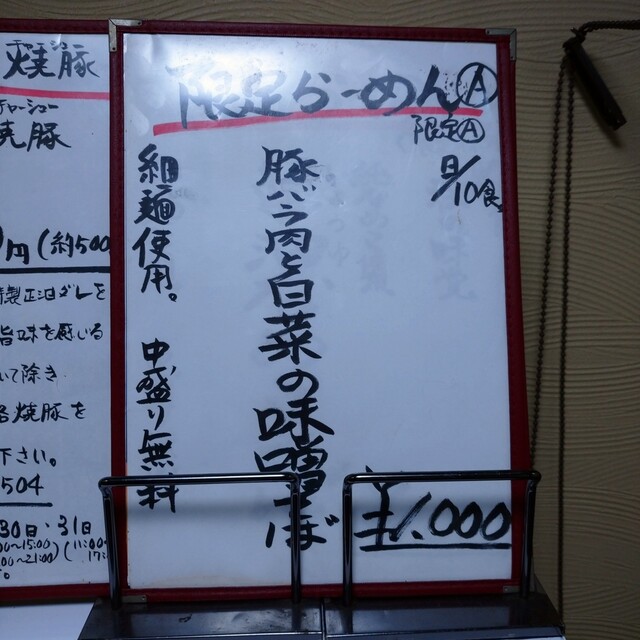 限定らーめんⒶ
限定Ⓐ
日/10食
豚バラ肉と白菜の味噌そば
細麺使用。 中盛り無料
¥1,000
焼豚
チャーシュー
焼豚
円(約500
特製正油ダレを
旨味を感いる
いて除き
焼豚を
下さい。
504
30日・31日